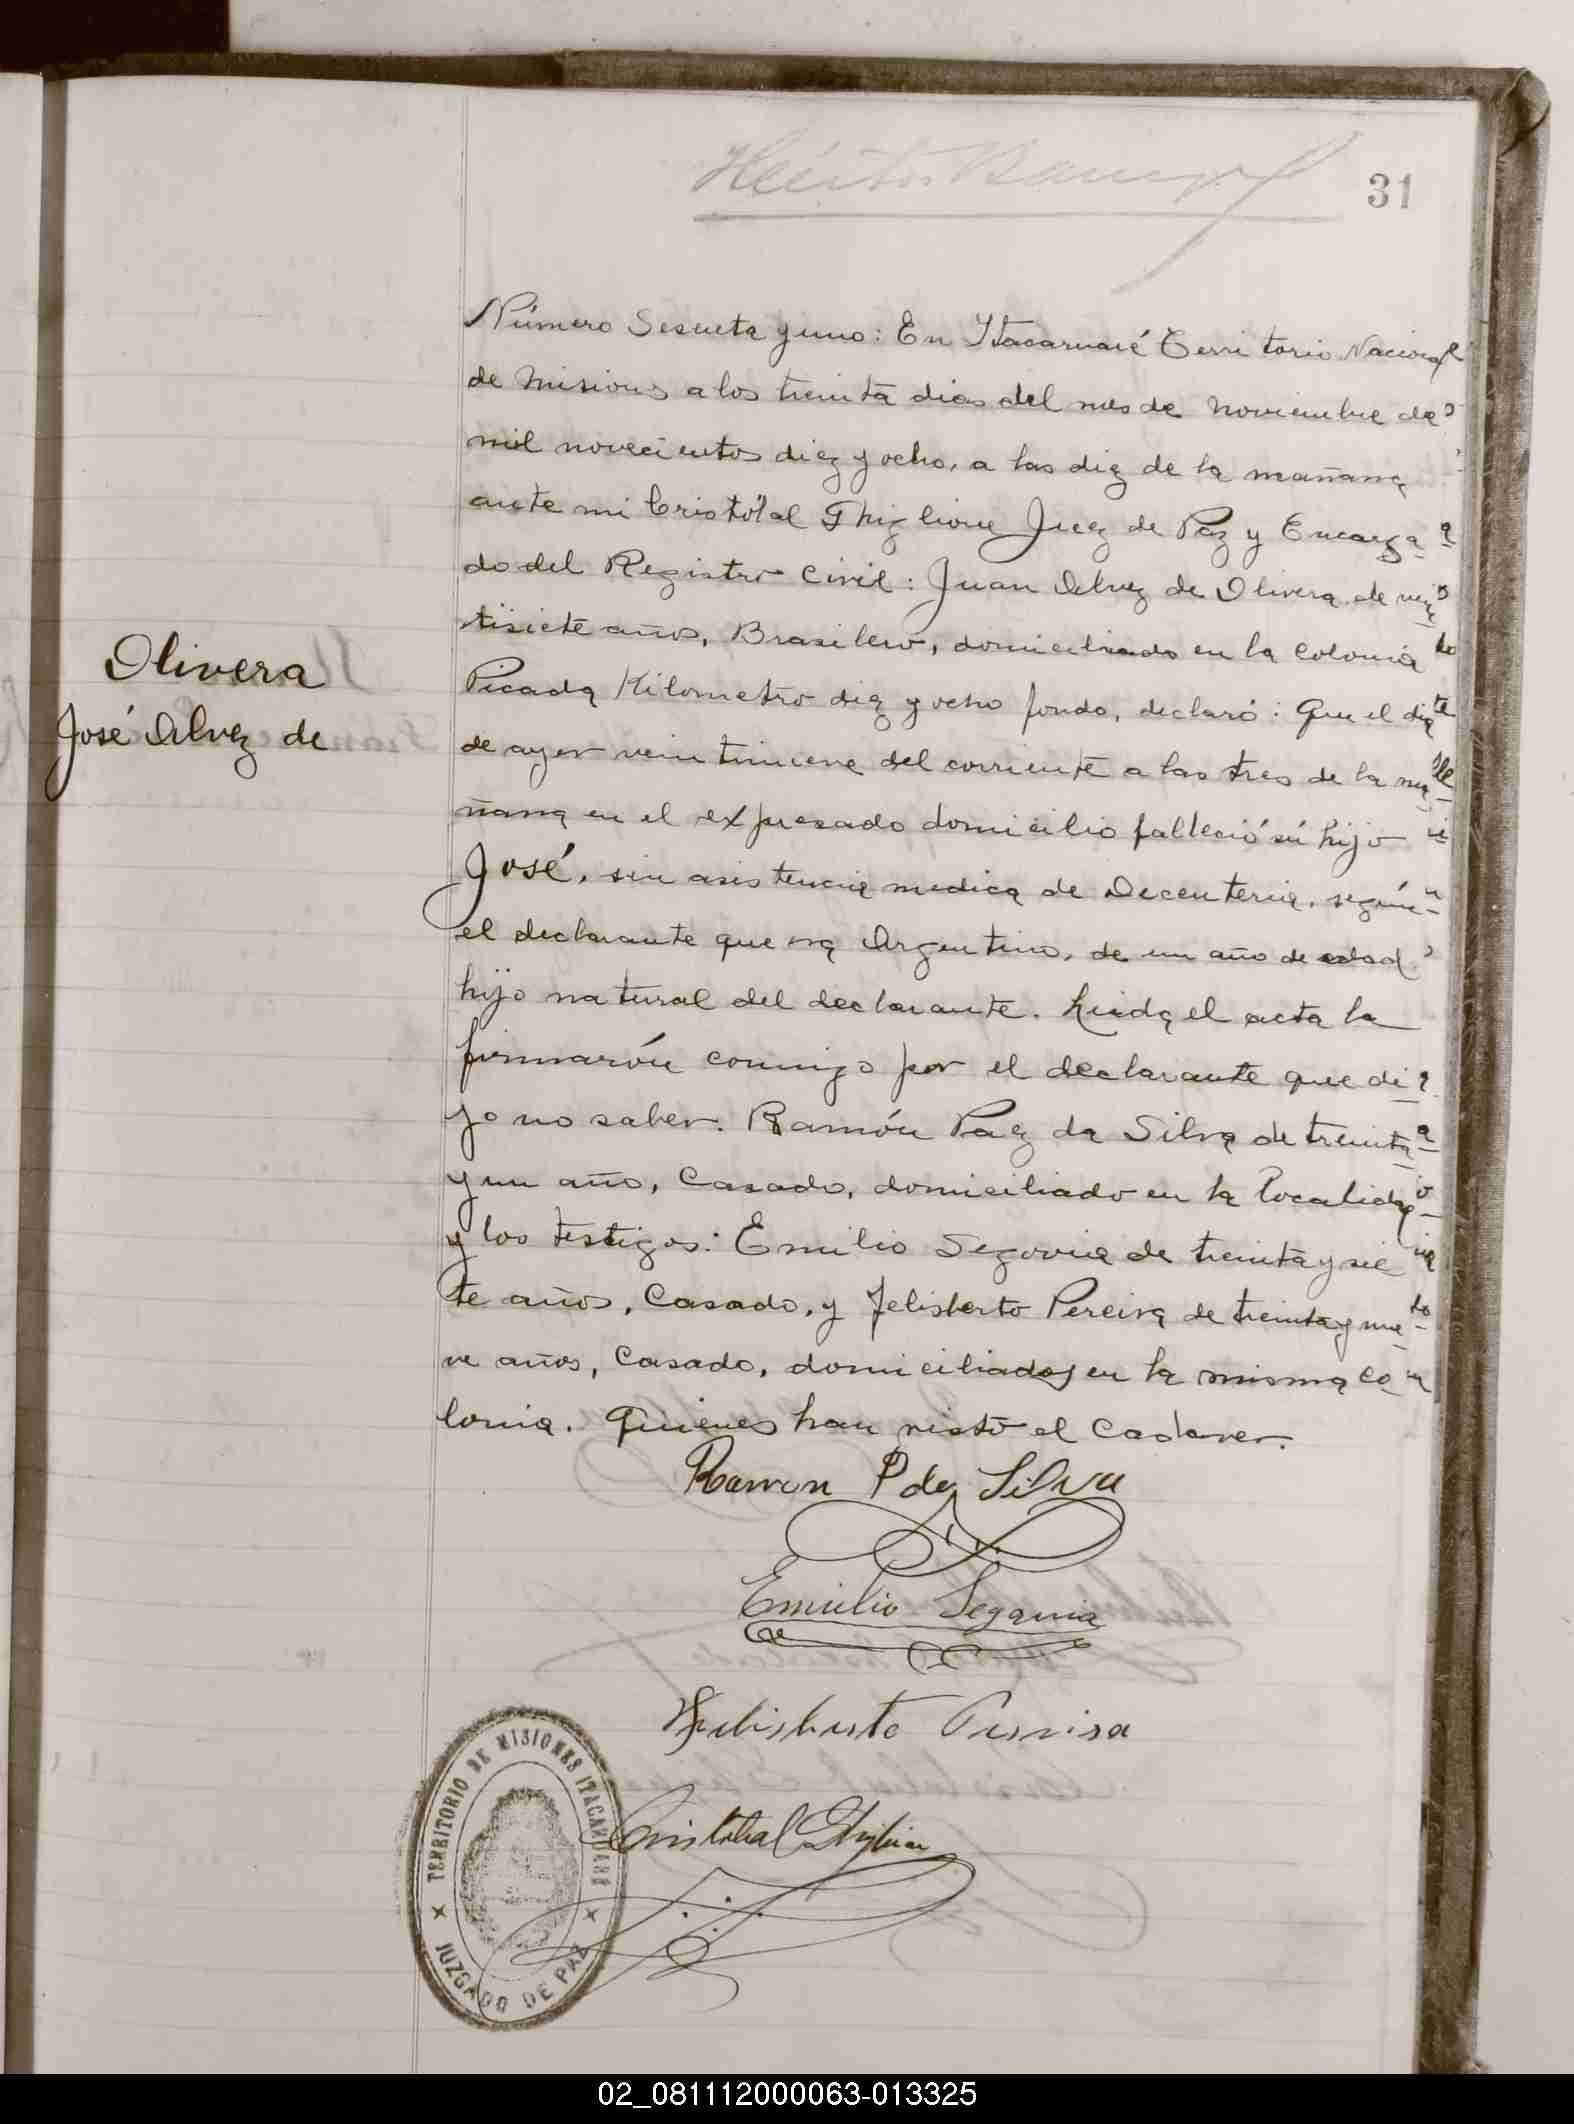 31
Número Sesenta y uno: En Itacaruaré Territorio Nacional
de Misiones a los treinta dias del mes de Noviembre de
mil novecientos diez y ocho, a las diez de la mañana
ante mi Cristóbal Ghiglione Juez de Paz y Encarga
do del Registro Civil: Juan Alvez de Olivera de vein
tisiete años, Brasilero, domiciliado en la Colonia
Picada Kilometro diez y ocho fondo, declaró: Que el dia
de ayer veintinueve del corriente a las tres de la ma
ñana en el expresado domicilio falleció su hijo
José, sin asistencia medica de Decenteria, según
el declarante que era Argentino, de un año de edad
hijo natural del declarante. Leida el acta la
firmarón conmigo por el declarante que di
jo no saber. Ramón Paz da Silva de treinta
y un año, Casado, domiciliado en la localidad
y los testigos: Emilio Segovia de treinta y sie
te años, Casado, y Felisberto Pereira de treinta y nue
ve años, Casado, domiciliados en la misma co
lonia. Quienes han visto el Cadaver.
Olivera
José Alvez de
Ramon P da Silva
Emilio Segovia
Felisberto Pereira
Cristobal Ghiglione
TERRITORIO DE MISIONES ITACARUARE
JUZGADO DE PAZ
02_081112000063-013325